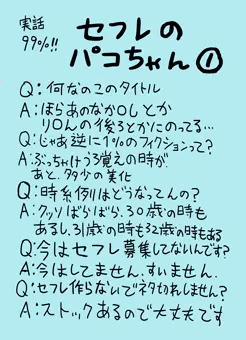 実話
99%!!
セフレの
パコちゃん①
Q:何なのこのタイトル
A:ほらあのなか〇しとか
り〇んの後ろとかにのってる…
Q:じゃあ逆に1%のフィクションって?
A:ぶっちゃけうろ覚えの時が
あと、多少の美化
Q:時系例りはどうなってんの?
A:クッソばらばら、30歳の時も
あるし、31歳の時も32歳の時もある
Q:今はセフレ募集してないんです?
A:今はしてません、すいません。
Q:セフレ作らないでネタ切れしません?
A:ストックあるので大丈夫です